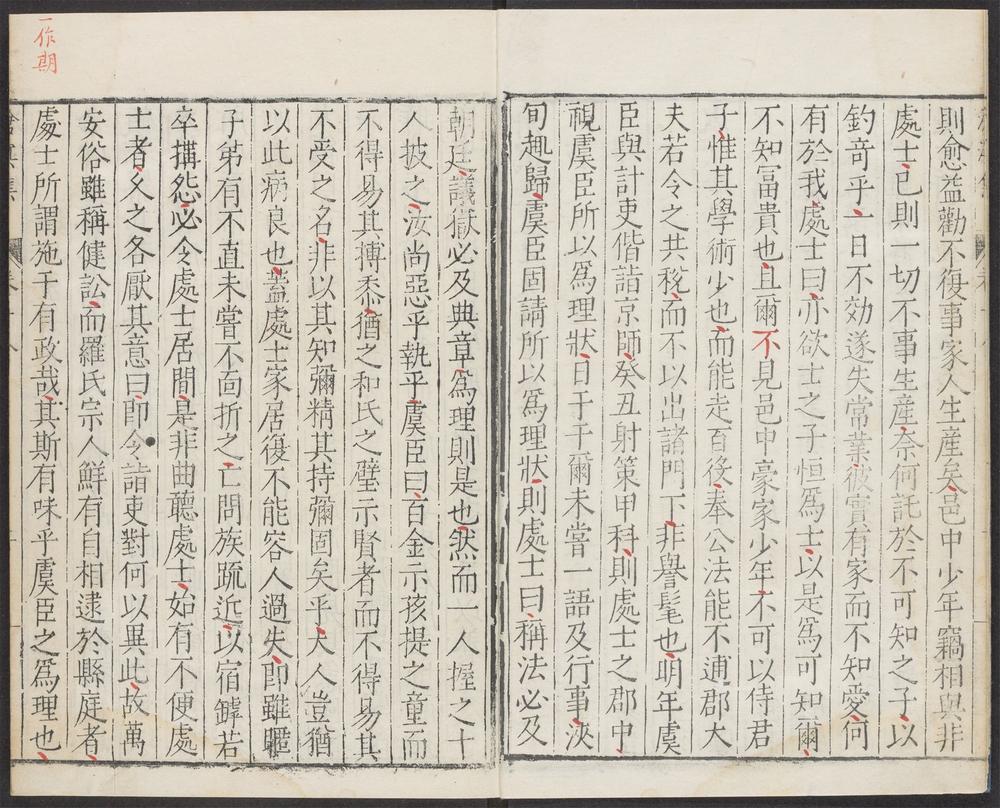 則愈益勸不復事家人生產矣邑中少年竊相與非
處士已則一切不事生產奈何託於不可知之子以
釣奇乎一日不効遂失常業彼實有家而不知愛何
有於我處士曰亦欲士之子恒爲士以是爲可知爾
不知冨貴也且爾不見邑中豪家少年不可以侍君
子惟其學術少也而能走百役奉公法能不逋郡大
夫若令之共稅而不以出諸門下非譽髦也明年虞
臣與計吏偕詣京師癸丑射策甲科則處士之郡中
視虞臣所以爲理狀日于于爾未嘗一語及行事浹
旬趣歸虞臣固請所以爲理狀則處士曰稱法必及
朝廷議獄必及典章爲理則是也然而一人握之十
人披之汝尚惡乎執乎虞臣曰百金示孩提之童而
不得易其摶黍猶之和氏之璧示賢者而不得易其
不受之名非以其知彌精其持彌固矣乎大人豈猶
以此病良也蓋處士家居復不能容人過失即雖曜
子弟有不直未嘗不面折之亡問族疏近以宿罅若
卒搆怨必令處士居間是非曲聽處士始有不便處
士者久之各厭其意曰即令詣吏對何以異此故萬
安俗雖稱健訟而羅氏宗人鮮有自相逮於縣庭者
處士所謂施于有政哉其斯有味乎虞臣之爲理也
一作期